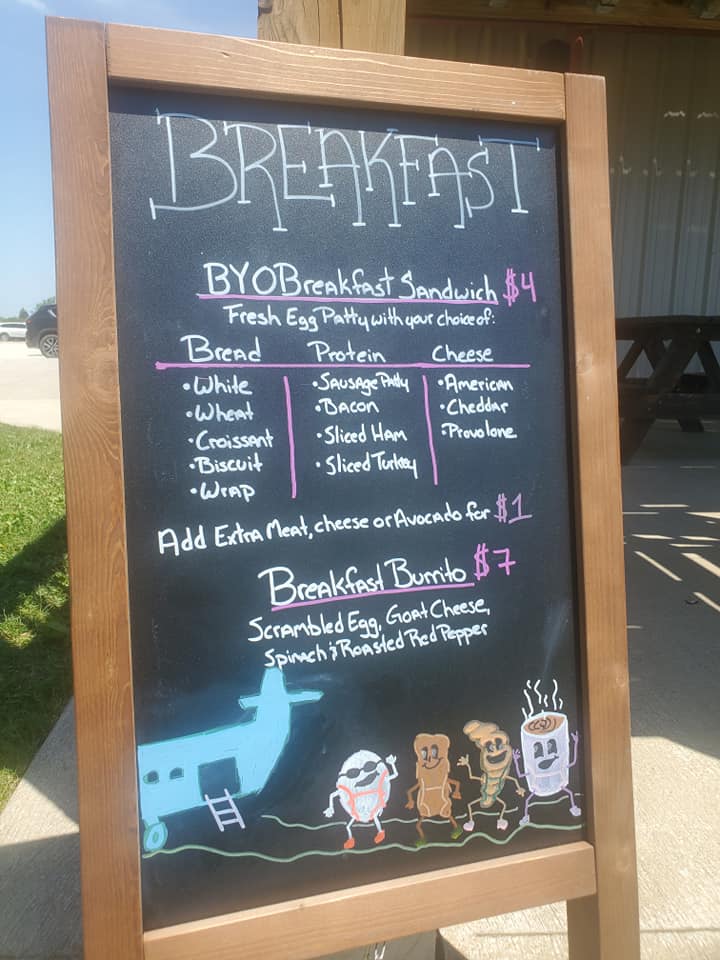 BREAKFAST
BYOBreakfast Sandwich $4
Fresh Egg Patty with your choice of:
Bread Protein Cheese
•White •Sausage Patty •American
•Wheat •Bacon •Cheddar
•Croissant •Sliced Ham •Provolone
•Biscuit •Sliced Turkey
•Wrap
Add Extra Meat, cheese or Avocado for $1
Breakfast Burrito $7
Scrambled Egg, Goat Cheese,
Spinach & Roasted Red Pepper